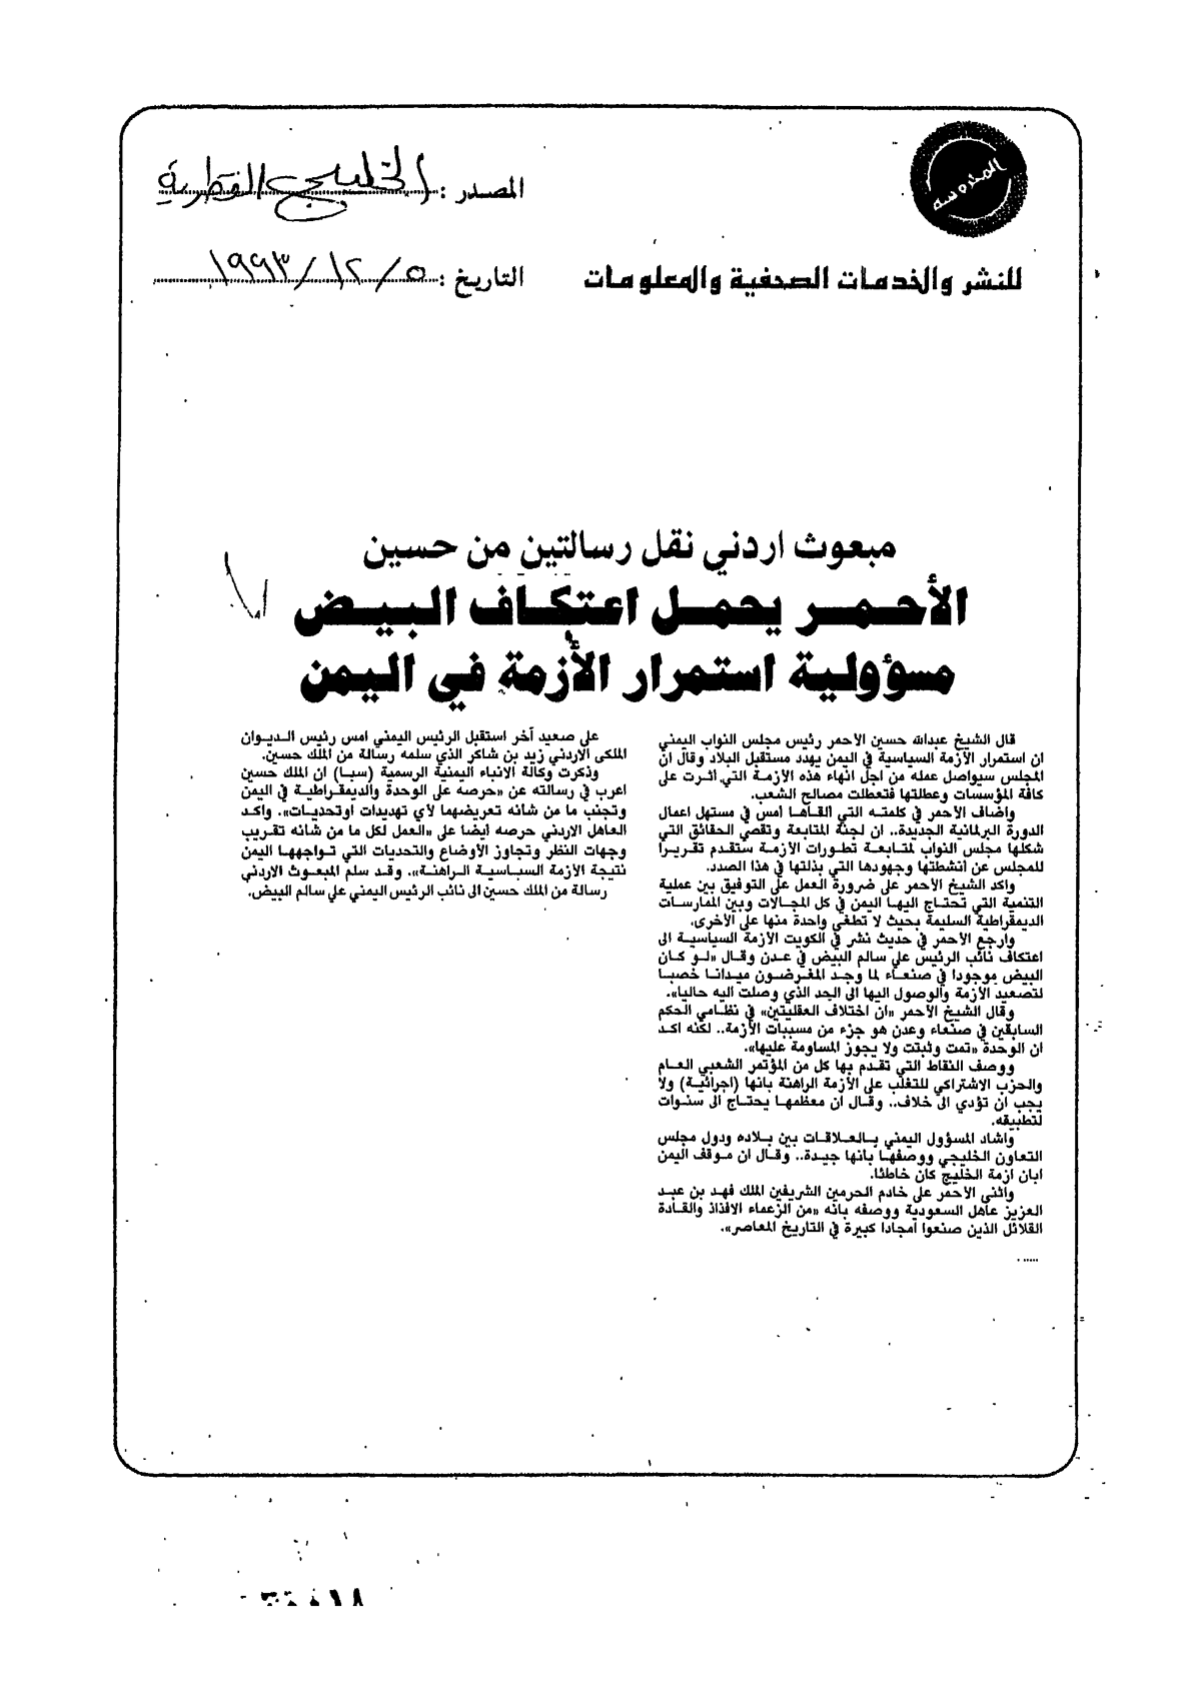 المحروسة
المصدر : الخليج القطرية
للنشر والخدمات الصحفية والمعلومات
التاريخ : ٥ / ١٢ / ١٩٩٣
مبعوث اردني نقل رسالتين من حسين
الأحمر يحمل اعتكاف البيض
مسؤولية استمرار الأزمة في اليمن
قال الشيخ عبدالله حسين الاحمر رئيس مجلس النواب اليمني
ان استمرار الأزمة السياسية في اليمن يهدد مستقبل البلاد وقال ان
المجلس سيواصل عمله من اجل انهاء هذه الازمة التي اثرت على
كافة المؤسسات وعطلتها فتعطلت مصالح الشعب.
واضاف الاحمر في كلمته التي القاها امس في مستهل اعمال
الدورة البرلمانية الجديدة.. ان لجنة المتابعة وتقصي الحقائق التي
شكلها مجلس النواب لمتابعة تطورات الازمة ستقدم تقريرا
للمجلس عن انشطتها وجهودها التي بذلتها في هذا الصدد.
واكد الشيخ الاحمر على ضرورة العمل على التوفيق بين عملية
التنمية التي تحتاج اليها اليمن في كل المجالات وبين الممارسات
الديمقراطية السليمة بحيث لا تطغى واحدة منها على الأخرى.
وارجع الأحمر في حديث نشر في الكويت الأزمة السياسية الى
اعتكاف نائب الرئيس علي سالم البيض في عدن وقال «لو كان
البيض موجودا في صنعاء لما وجد المغرضون ميدانا خصبا
لتصعيد الأزمة والوصول اليها الى الحد الذي وصلت اليه حاليا».
وقال الشيخ الأحمر «ان اختلاف العقليتين» في نظامي الحكم
السابقين في صنعاء وعدن هو جزء من مسببات الأزمة.. لكنه اكد
ان الوحدة «تمت وثبتت ولا يجوز المساومة عليها».
ووصف النقاط التي تقدم بها كل من المؤتمر الشعبي العام
والحزب الاشتراكي للتغلب على الأزمة الراهنة بانها (اجرائية) ولا
يجب ان تؤدي الى خلاف.. وقال ان معظمها يحتاج الى سنوات
لتطبيقه.
واشاد المسؤول اليمني بالعلاقات بين بلاده ودول مجلس
التعاون الخليجي ووصفها بانها جيدة.. وقال ان موقف اليمن
ابان ازمة الخليج كان خاطئا.
واثنى الاحمر على خادم الحرمين الشريفين الملك فهد بن عبد
العزيز عاهل السعودية ووصفه بانه «من الزعماء الافذاذ والقادة
القلائل الذين صنعوا امجادا كبيرة في التاريخ المعاصر».
على صعيد آخر استقبل الرئيس اليمني امس رئيس الديوان
الملكي الاردني زيد بن شاكر الذي سلمه رسالة من الملك حسين.
وذكرت وكالة الانباء اليمنية الرسمية (سبا) ان الملك حسين
اعرب في رسالته عن «حرصه على الوحدة والديمقراطية في اليمن
وتجنب ما من شانه تعريضهما لأي تهديدات اوتحديات». واكد
العاهل الاردني حرصه ايضا على «العمل لكل ما من شانه تقريب
وجهات النظر وتجاوز الأوضاع والتحديات التي تواجهها اليمن
نتيجة الأزمة السياسية الراهنة». وقد سلم المبعوث الاردني
رسالة من الملك حسين الى نائب الرئيس اليمني علي سالم البيض.